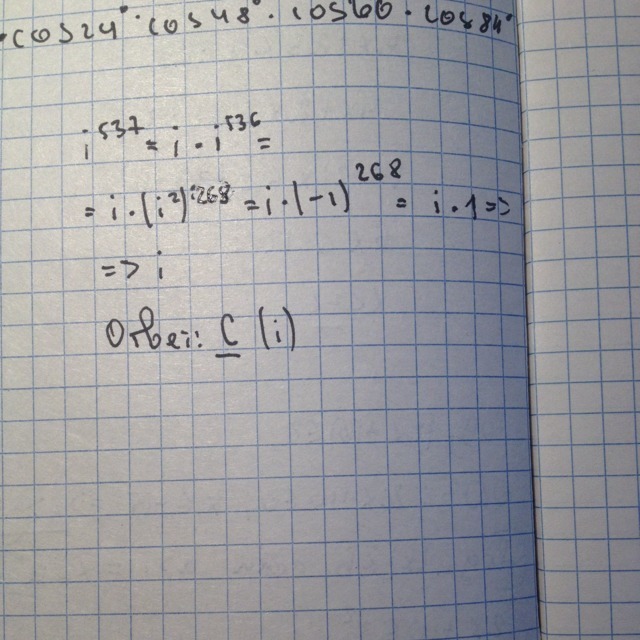 ·cos24°·cos48°·cos60·cos84°
i⁵³⁷ = i·i⁵³⁶ =
= i·(i²)²⁶⁸ = i·(-1)²⁶⁸ = i·1 =>
=> i
Ответ: C (i)